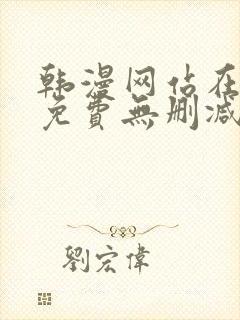 韩漫网站在
免費無删减
劉宏偉